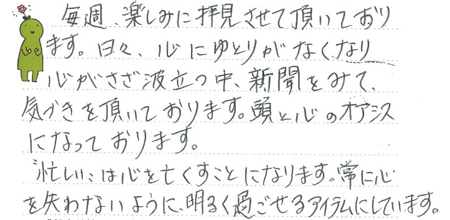 毎週、楽しみに拝見させて頂いており
ます。日々、心にゆとりがなくなり
心がさざ波立つ中、新聞をみて、
気づきを頂いております。頭と心のオアシス
になっております。
“忙しい〟は心を亡くすことになります。常に心
を失わないように、明るく過ごせるアイテムにしています。